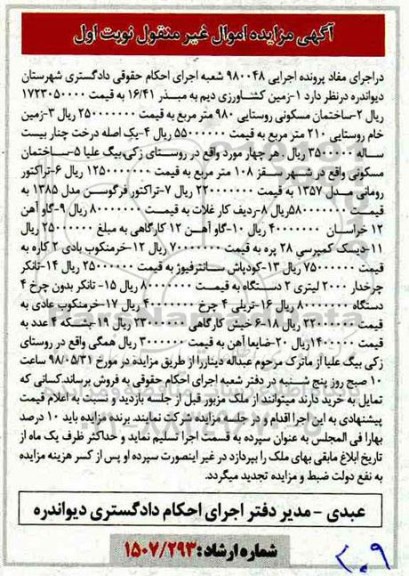 آگهی مزایده اموال غیر منقول نوبت اول
دراجرای مفاد پرونده اجرایی ۹۸۰۰۴۸ شعبه اجرای احکام حقوقی دادگستری شهرستان
دیواندره درنظر دارد ۱-زمین کشاورزی دیم به مبذر ۱۶/۴۱ به قیمت ۱۷۲۳۰۵۰۰۰۰
ریال ۲-ساختمان مسکونی روستایی ۹۸۰ متر مربع به قیمت ۲۵۰۰۰۰۰۰۰ ریال ۳-زمین
خام روستایی ۲۱۰ متر مربع به قیمت ۵۵۰۰۰۰۰۰ ریال ۴-یک اصله درخت چنار بیست
ساله ۳۵۰۰۰۰۰ ریال ، هر چهار مورد واقع در روستای زکی‌بیگ علیا ۵-ساختمان
مسکونی واقع در شهر سقز ۱۰۸ متر مربع به قیمت ۱۲۵۰۰۰۰۰۰۰ ریال ۶-تراکتور
رومانی مدل ۱۳۵۷ به قیمت ۲۲۰۰۰۰۰۰۰ ریال ۷-تراکتور فرگوسن مدل ۱۳۸۵ به
قیمت ۵۸۰۰۰۰۰۰۰ریال ۸-ردیف کار غلات به قیمت ۸۰۰۰۰۰۰۰ ریال ۹-گاو آهن
۱۲ خراسان ۴۰۰۰۰۰۰۰ ریال ۱۰-گاو آهن ۱۲ کارگاهی به مبلغ ۲۵۰۰۰۰۰۰ ریال
۱۱-دیسک کمپرسی ۲۸ پره به قیمت ۷۰۰۰۰۰۰۰ ریال ۱۲-خرمنکوب بادی ۲ کاره به
قیمت ۷۵۰۰۰۰۰۰ ریال ۱۳-کودپاش سانترفیوژ به قیمت ۲۵۰۰۰۰۰۰ ریال ۱۴-تانکر
چرخدار ۲۰۰۰ لیتری ۲ دستگاه به قیمت ۸۰۰۰۰۰۰۰ ریال ۱۵- تانکر بدون چرخ ۴
دستگاه ۸۰۰۰۰۰۰۰ ریال ۱۶-تریلی ۴ چرخ ۴۰۰۰۰۰۰۰ ریال ۱۷-خرمنکوب عادی به
قیمت ۲۲۰۰۰۰۰۰ ریال ۱۸-۶ خیش کارگاهی ۲۳۰۰۰۰۰۰ ریال ۱۹-بشکه ۴ عدد به
قیمت ۱۴۰۰۰۰۰ریال ۲۰-ضایعا آهن به قیمت ۳۰۰۰۰۰۰ ریال همگی واقع در روستای
زکی بیگ علیا از ماترک مرحوم عبداله دینار را از طریق مزایده در مورخ ۹۸/۰۵/۳۱ ساعت
۱۰ صبح روز پنج شنبه در دفتر شعبه اجرای احکام حقوقی به فروش برساند.کسانی که
تمایل به خرید دارند میتوانند از ملک مزبور قبل از جلسه بازدید و نسبت به اعلام قیمت
پیشنهادی به این اجرا اقدام و در جلسه مزایده شرکت نمایند. برنده مزایده باید ۱۰ درصد
بهارا فی المجلس به عنوان سپرده به قسمت اجرا تسلیم نماید و حداکثر ظرف یک ماه از
تاریخ ابلاغ مابقی بهای ملک را بپردازد در غیر اینصورت سپرده او پس از کسر هزینه مزایده
به نفع دولت ضبط و مزایده تجدید میگردد.
عبدی - مدیر دفتر اجرای احکام دادگستری دیواندره
شماره ارشاد: ۱۵۰۷/۲۹۳
۲۰۹